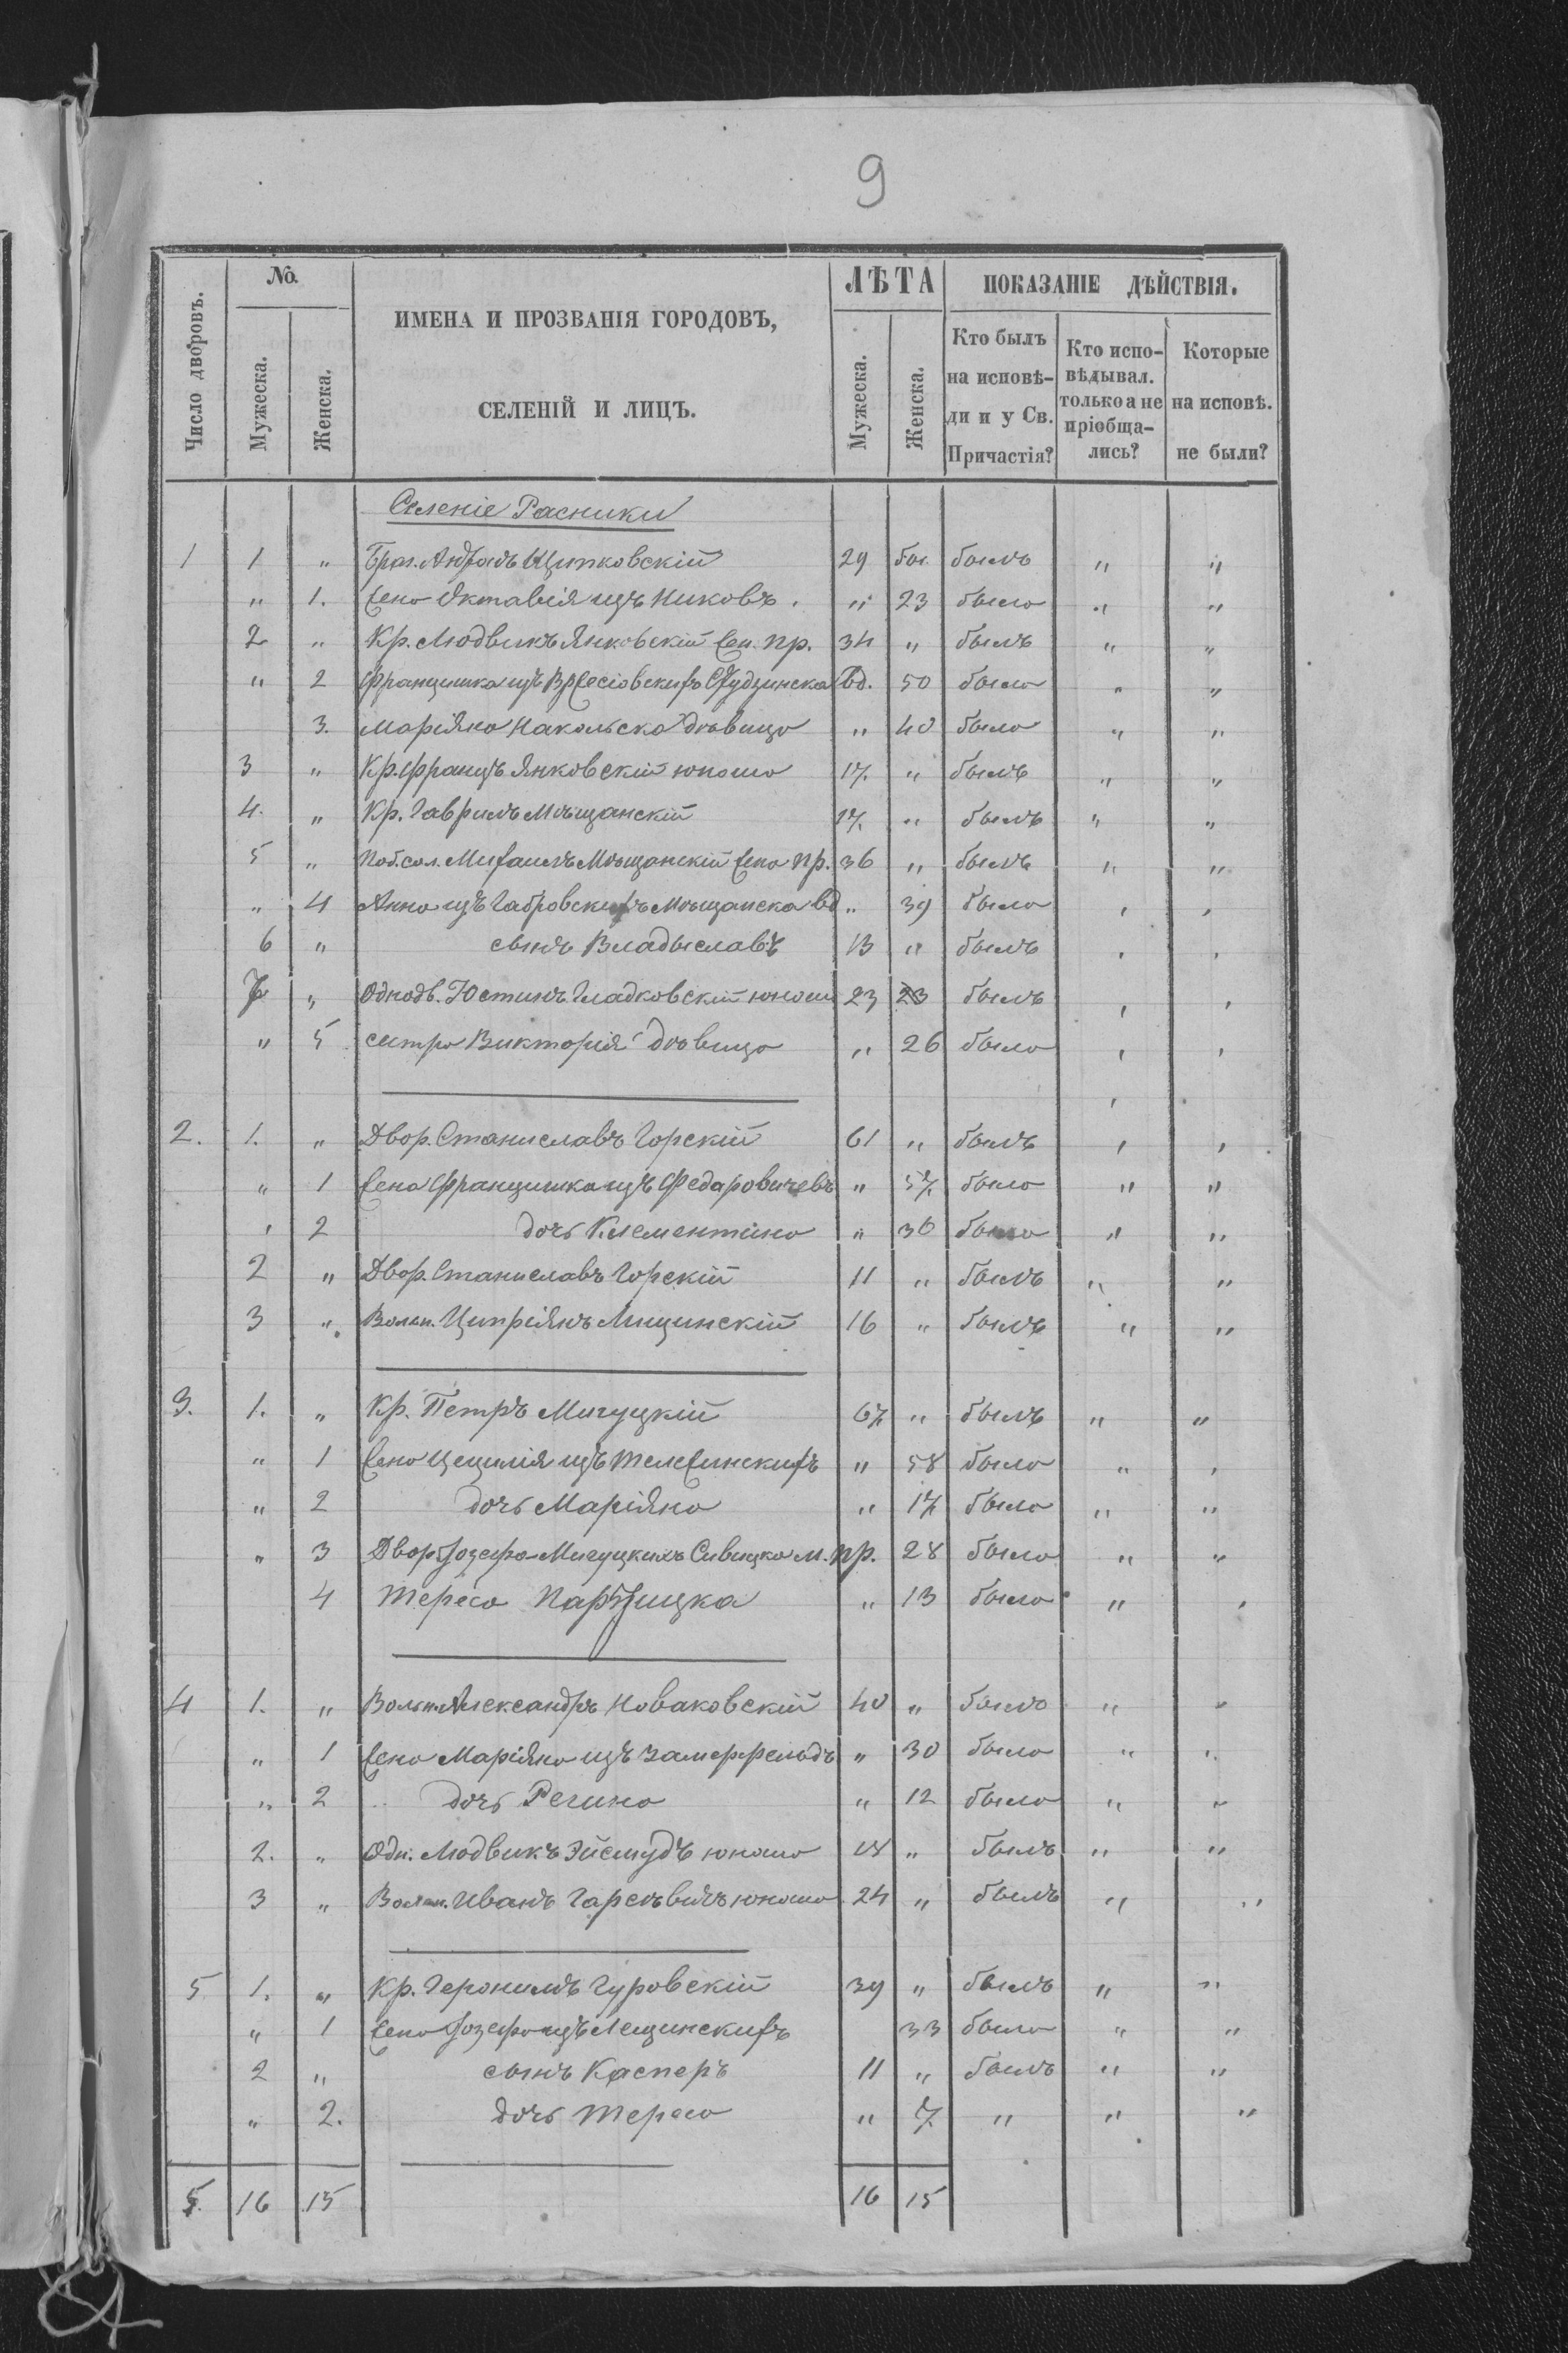 9
Число дворовъ. | №. | ИМЕНА И ПРОЗВАНІЯ ГОРОДОВЪ, СЕЛЕНІЙ И ЛИЦЪ. | ЛѢТА | ПОКАЗАНІЕ ДѢЙСТВІЯ.
Мужеска. | Женска. | Мужеска. | Женска. | Кто былъ на исповѣ-ди и у Св. Причастія? | Кто испо-вѣдывал. только а не пріобща-лись? | Которые на исповѣ. не были?
Селеніе Расники
1 1 „ Андрей Щитковскій 29 былъ „ „
„ 1. Жена Октавія изъ Никовъ. „ 23 была „ „
2 „ Кр. Людвикъ Янковскій Жен. пр. 34 „ былъ „ „
„ 2 Францишка изъ вд. 50 была „ „
3. Маріяна Накольска дѣвица „ 40 была „ „
3 „ Кр. Францъ Янковскій юноша 17. „ былъ „ „
4. „ Кр. Гаврилъ Мѣщанскій 17. „ былъ „ „
5 „ Михаилъ Мѣщанскій Жена пр. 36 „ былъ „ „
„ 4 Анна изъ Габровскихъ Мѣщанска вд „ 39 была „ „
6 „ сынъ Владыславъ 13 „ былъ „ „
7 „ Однодв. Юстинъ Гладковскій юноша 23 23 былъ „ „
„ 5 сестра Викторія дѣвица „ 26 была „ „
2. 1. „ Двор. Станиславъ Горскій 61 „ былъ „ „
„ 1 Жена Францишка изъ Федаровичевъ „ 57. была „ „
„ 2 дочь Клементина „ 36 была „ „
2 „ Двор. Станиславъ Горскій 11 „ былъ „ „
3 „ Вольн. Ципріянъ Лищинскій 16 „ былъ „ „
3. 1. „ Кр. Петръ Мигуцкій 67 „ былъ „ „
„ 1 Жена Цецилія изъ Тележинскихъ „ 58 была „ „
„ 2 дочь Маріяна „ 17 была „ „
„ 3 Двор. Іозефа Мигуцкихъ Сивицка м. пр. 28 была „ „
4 Тереса „ 13 была „ „
4 1. „ Вольн. Александръ Новаковскій 40 „ былъ „ „
„ 1 Жена Маріяна изъ „ 30 была „ „
„ 2 дочь Регина „ 12 была „ „
2. „ Одн. Людвикъ Эйсмудъ юноша 18 „ былъ „ „
3 „ Вольн. Иванъ юноша 24 „ былъ „ „
5 1. „ Кр. Геронимъ Гуровскій 39 „ былъ „ „
„ 1 Жена Іозефа изъ Лещинскихъ 33 была „ „
2 „ сынъ Касперъ 11 „ былъ „ „
„ 2. дочь Тереса „ 7. „ „ „
5. 16 15 16 15